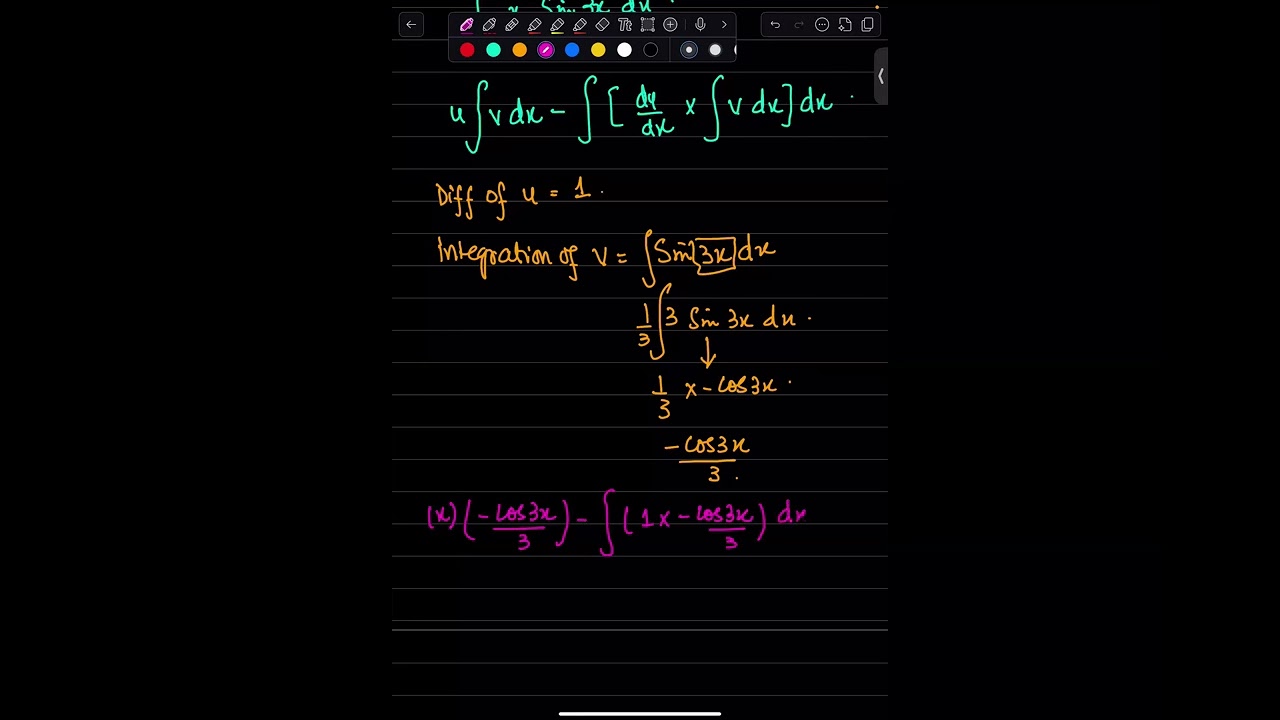 ∫ x Sin 3x dx
u ∫ v dx - ∫ [ du/dx × ∫ v dx ] dx .
Diff of u = 1 .
Integration of v = ∫ Sin 3x dx
1/3 ∫ 3 Sin 3x dx .
↓
1/3 × - cos 3x .
- cos 3x / 3 .
(x) ( - cos 3x / 3 ) - ∫ ( 1 × - cos 3x / 3 ) dx